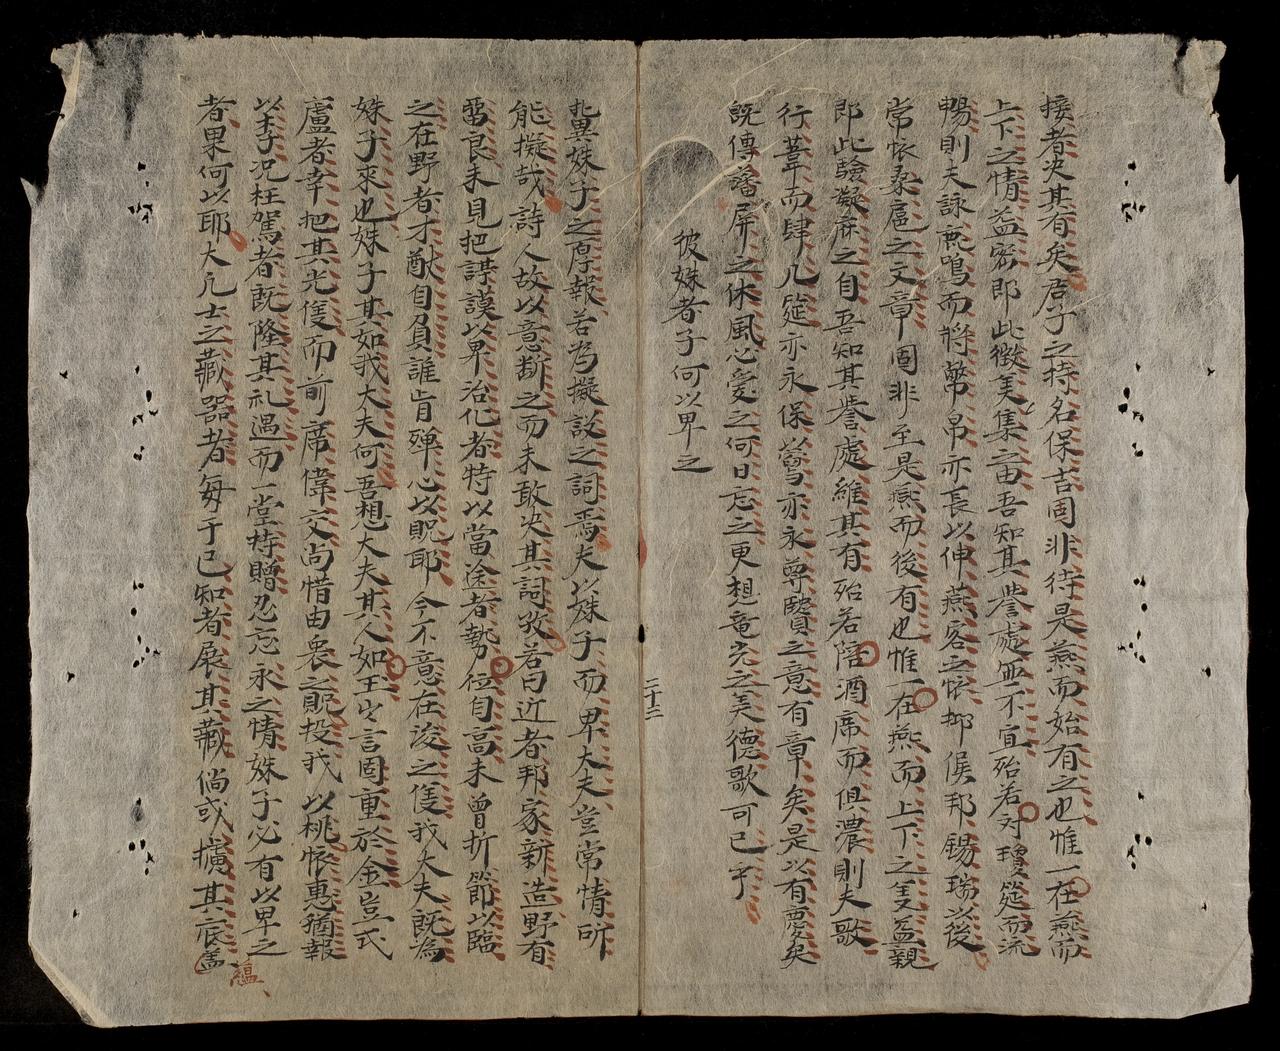 接者决其有矣君子之持名保吉固非待是燕而始有之也惟一在燕而
上下之情益密即此徵美集之由吾知其誉處並不宜殆若对瓊筵而流
暢則夫詠鹿鳴而將幣帛亦長以伸燕客之懷抑侯邦錫瑞以後
常懷桑扈之文章固非至是燕而後有也惟一在燕而上下之美益親
即此驗凝庥之自吾知其誉處維其有殆若陪酒席而俱濃則夫歌
行葦而肆几筵亦永保鶯亦永尊賢之意有章矣是以有慶矣
既傳藩屏之休風心愛之何日忘之更想竜光之美德歌可已乎
彼姝者子何以畀之
二十二
異姝子之厚報若為擬議之詞焉夫以姝子而畀大夫豈常情所
能擬哉詩人故以意断之而未敢决其詞敀若曰近者邦家新造野有
良未見把謨以畀治化者特以當途者勢位自高未曾折節以臨
之在野者才猷自負誰肯殫心以貺耶今不意在浚之隻我大夫既為
姝子來也姝子其如我大夫何吾想大夫其人如玉言固重於金豈式
廬者幸把其光隻而前席偉文尚惜由衷之貺投我以桃懷惠猶報
以李况枉駕者既隆其礼遇而一堂持贈忍忘永之情姝子必有以畀之
者果何以耶大凢士之藏器者每于已知者展其藏倘或擴其底蘊